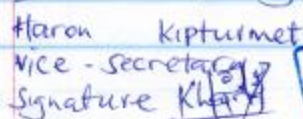 Haron Kipturmet
Vice - Secretary
Signature